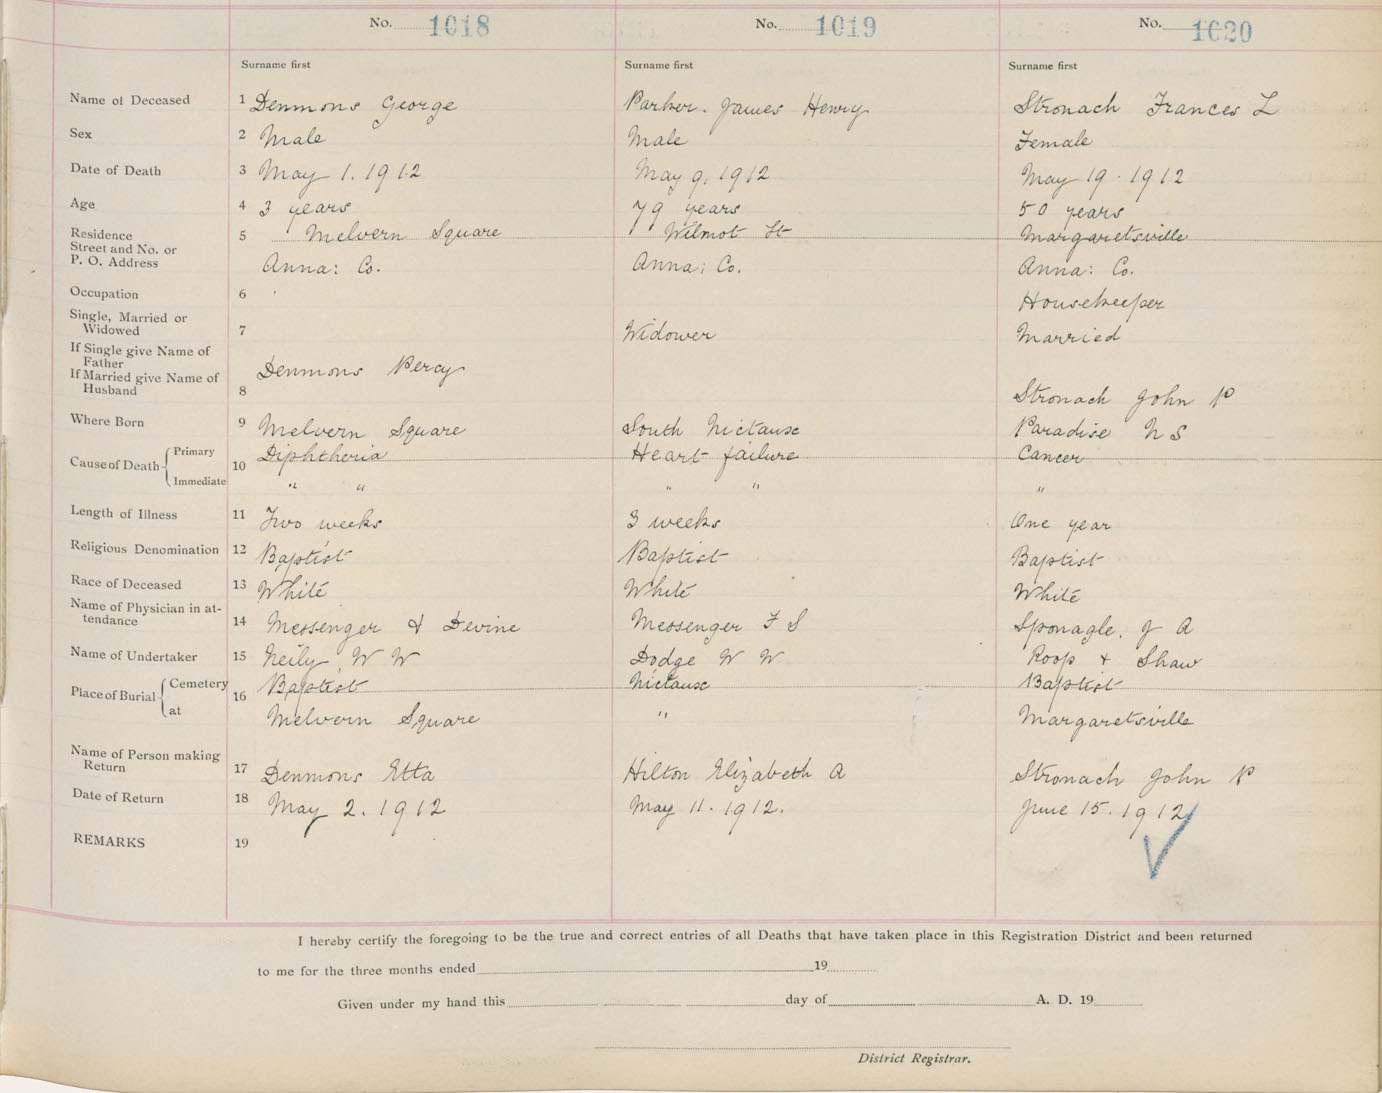 No. 1018 No. 1019 No. 1020
Surname first Surname first Surname first
Name of Deceased 1 Denmons George Parker. James Henry Stronach Frances L
Sex 2 Male Male Female
Date of Death 3 May 1. 1912 May 9. 1912 May 19. 1912
Age 4 3 years 79 years 50 years
Residence 5 Melvern Square Wilmot St Margaretsville
Street and No. or
P. O. Address Anna: Co. Anna: Co. Anna: Co.
Occupation 6 Housekeeper
Single, Married or
Widowed 7 Widower Married
If Single give Name of
Father Denmons Percy
If Married give Name of
Husband 8 Stronach John P
Where Born 9 Melvern Square South Nictaux Paradise N S
Cause of Death Primary 10 Diphtheria Heart failure Cancer
Immediate " " " " "
Length of Illness 11 Two weeks 3 weeks One year
Religious Denomination 12 Baptist Baptist Baptist
Race of Deceased 13 White White White
Name of Physician in at-
tendance 14 Messenger & Devine Messenger F S Sponagle. J A
Name of Undertaker 15 Neily. W W Dodge W W Roop & Shaw
Place of Burial Cemetery 16 Baptist Nictaux Baptist
at Melvern Square " Margaretsville
Name of Person making
Return 17 Denmons Etta Hilton Elizabeth A Stronach John P
Date of Return 18 May 2. 1912 May 11. 1912. June 15. 1912
REMARKS 19
I hereby certify the foregoing to be the true and correct entries of all Deaths that have taken place in this Registration District and been returned
to me for the three months ended 19
Given under my hand this day of A. D. 19
District Registrar.